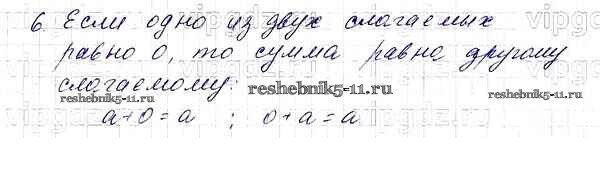 6. Если одно из двух слагаемых
равно 0, то сумма равна другому
слагаемому:
reshebnik5-11.ru
reshebnik5-11.ru
a+0=a ; 0+a=a